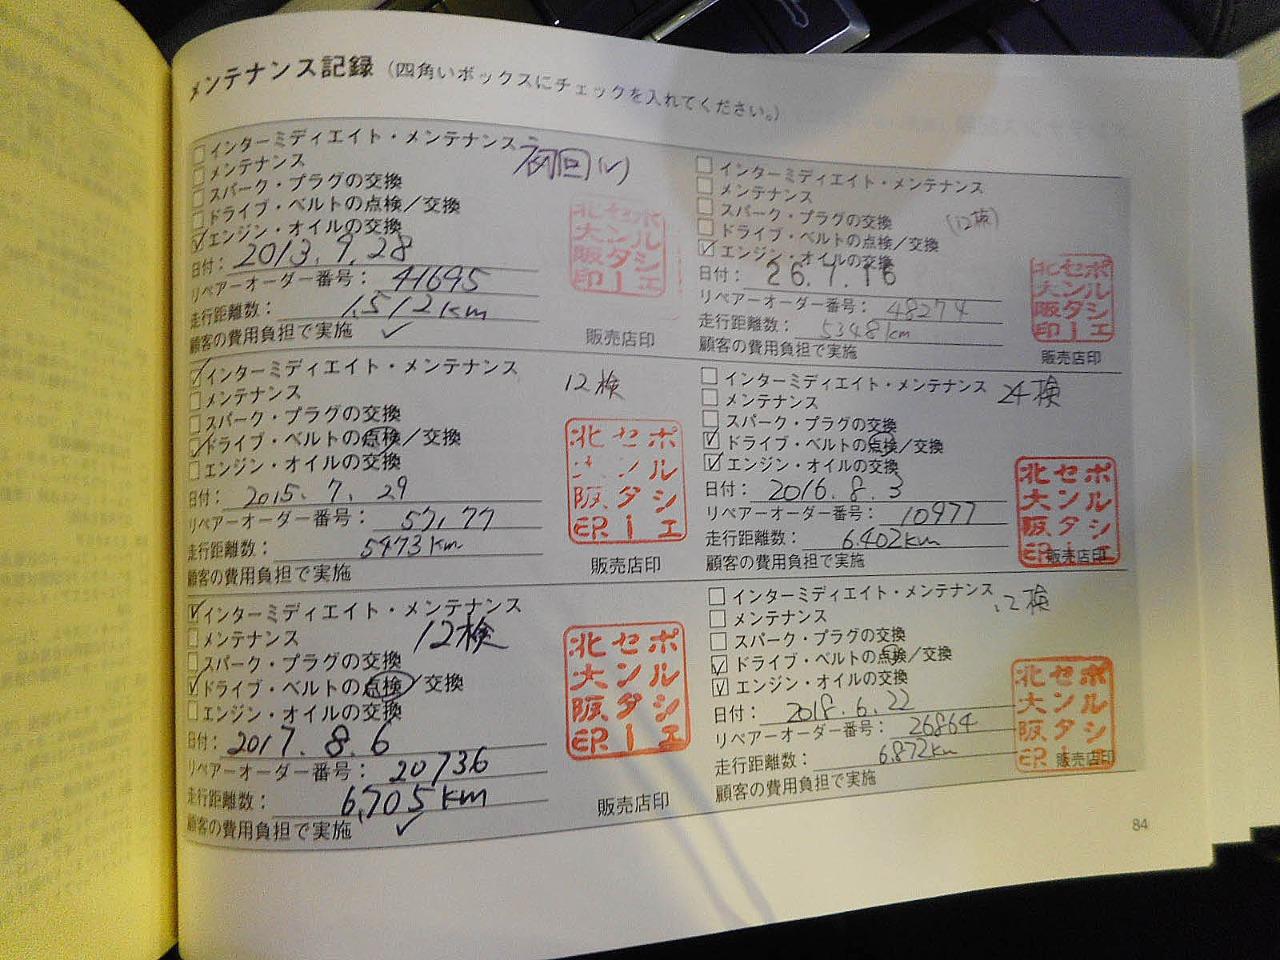 メンテナンス記録（四角いボックスにチェックを入れてください。）
インターミディエイト・メンテナンス
初回(レ)
メンテナンス
スパーク・プラグの交換
ドライブ・ベルトの点検／交換
エンジン・オイルの交換
日付： 2013. 9. 28
リペアーオーダー番号： 41695
走行距離数： 1,512km
顧客の費用負担で実施
ポルシェ
センター
北大阪印
販売店印
インターミディエイト・メンテナンス
メンテナンス
スパーク・プラグの交換
(12検)
ドライブ・ベルトの点検／交換
エンジン・オイルの交換
日付： 26.7.16
リペアーオーダー番号： 48274
走行距離数： 5348km
顧客の費用負担で実施
ポルシェ
センター
北大阪印
販売店印
インターミディエイト・メンテナンス
12検
メンテナンス
スパーク・プラグの交換
ドライブ・ベルトの点検／交換
エンジン・オイルの交換
日付： 2015. 7. 29
リペアーオーダー番号：
走行距離数： 5473km
顧客の費用負担で実施
ポルシェ
センター
北大阪印
販売店印
インターミディエイト・メンテナンス
24検
メンテナンス
スパーク・プラグの交換
ドライブ・ベルトの点検／交換
エンジン・オイルの交換
日付： 2016. 8. 3
リペアーオーダー番号： 10977
走行距離数： 6.402km
顧客の費用負担で実施
ポルシェ
センター
北大阪印
販売店印
インターミディエイト・メンテナンス
メンテナンス
12検
スパーク・プラグの交換
ドライブ・ベルトの点検／交換
エンジン・オイルの交換
日付： 2017. 8. 6
リペアーオーダー番号： 20736
走行距離数： 6,705km
顧客の費用負担で実施
ポルシェ
センター
北大阪印
販売店印
インターミディエイト・メンテナンス
12検
メンテナンス
スパーク・プラグの交換
ドライブ・ベルトの点検／交換
エンジン・オイルの交換
日付： 2018. 6. 22
リペアーオーダー番号： 26864
走行距離数： 6.872km
顧客の費用負担で実施
ポルシェ
センター
北大阪印
販売店印
84